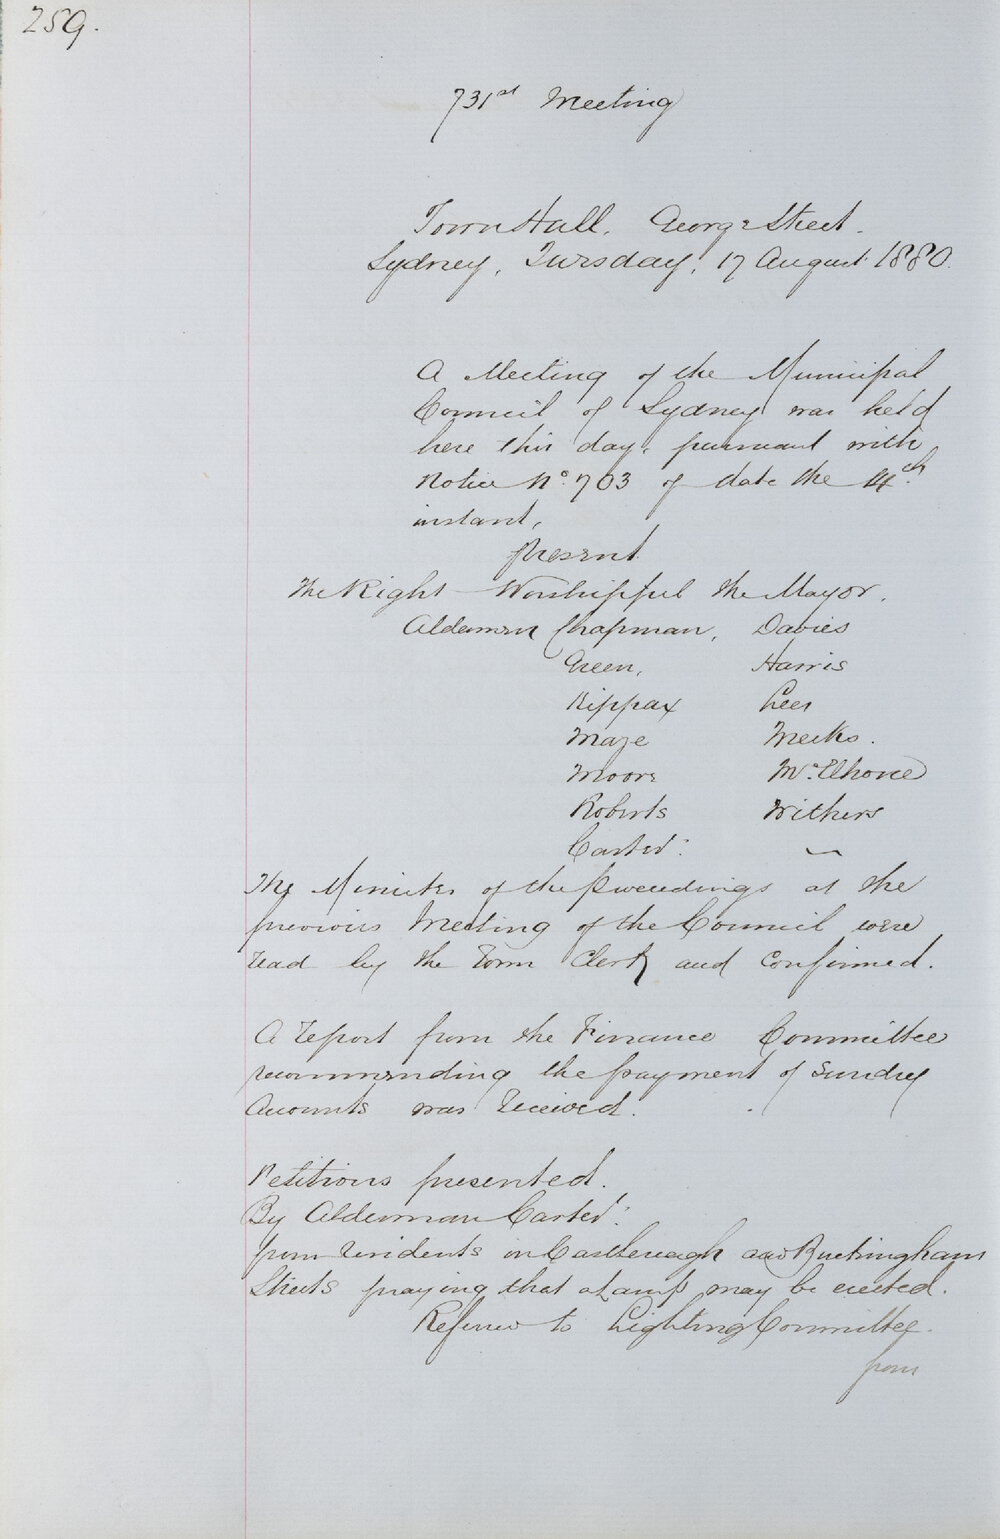 259.
731st Meeting
Town Hall, George Street.
Sydney, Tuesday, 17 August 1880.
A Meeting of the Municipal
Council of Sydney was held
here this day, pursuant with
Notice No. 703 of date the 14th
instant,
present
The Right Worshipful the Mayor.
Aldermen Chapman, Davies
Green, Harris
Kippax Lees
Maze Meeks.
Moore McElhone
Roberts Withers
Carter.
The Minutes of the Proceedings at the
previous Meeting of the Council were
read by the Town Clerk and confirmed.
A report from the Finance Committee
recommending the payment of sundry
Accounts was received.
Petitions presented.
By Alderman Carter:
from residents in Castlereagh and Buckingham
Streets praying that a Lamp may be erected.
Referred to Lighting Committee.
from